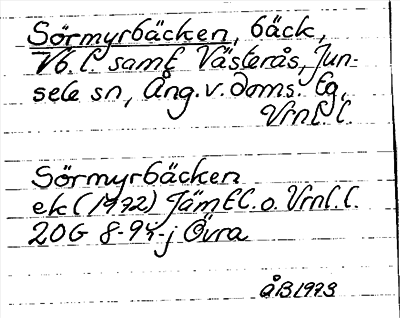 Sörmyrbäcken, bäck,
Vb. l. samt Västerås, Jun-
sele sn, Ång. v. doms. tg,
Vrnl. l.
Sörmyrbäcken
ek (1972) Jämtl. o. Vrnl. l.
20G 8-9 i-j Övra
åB 1973